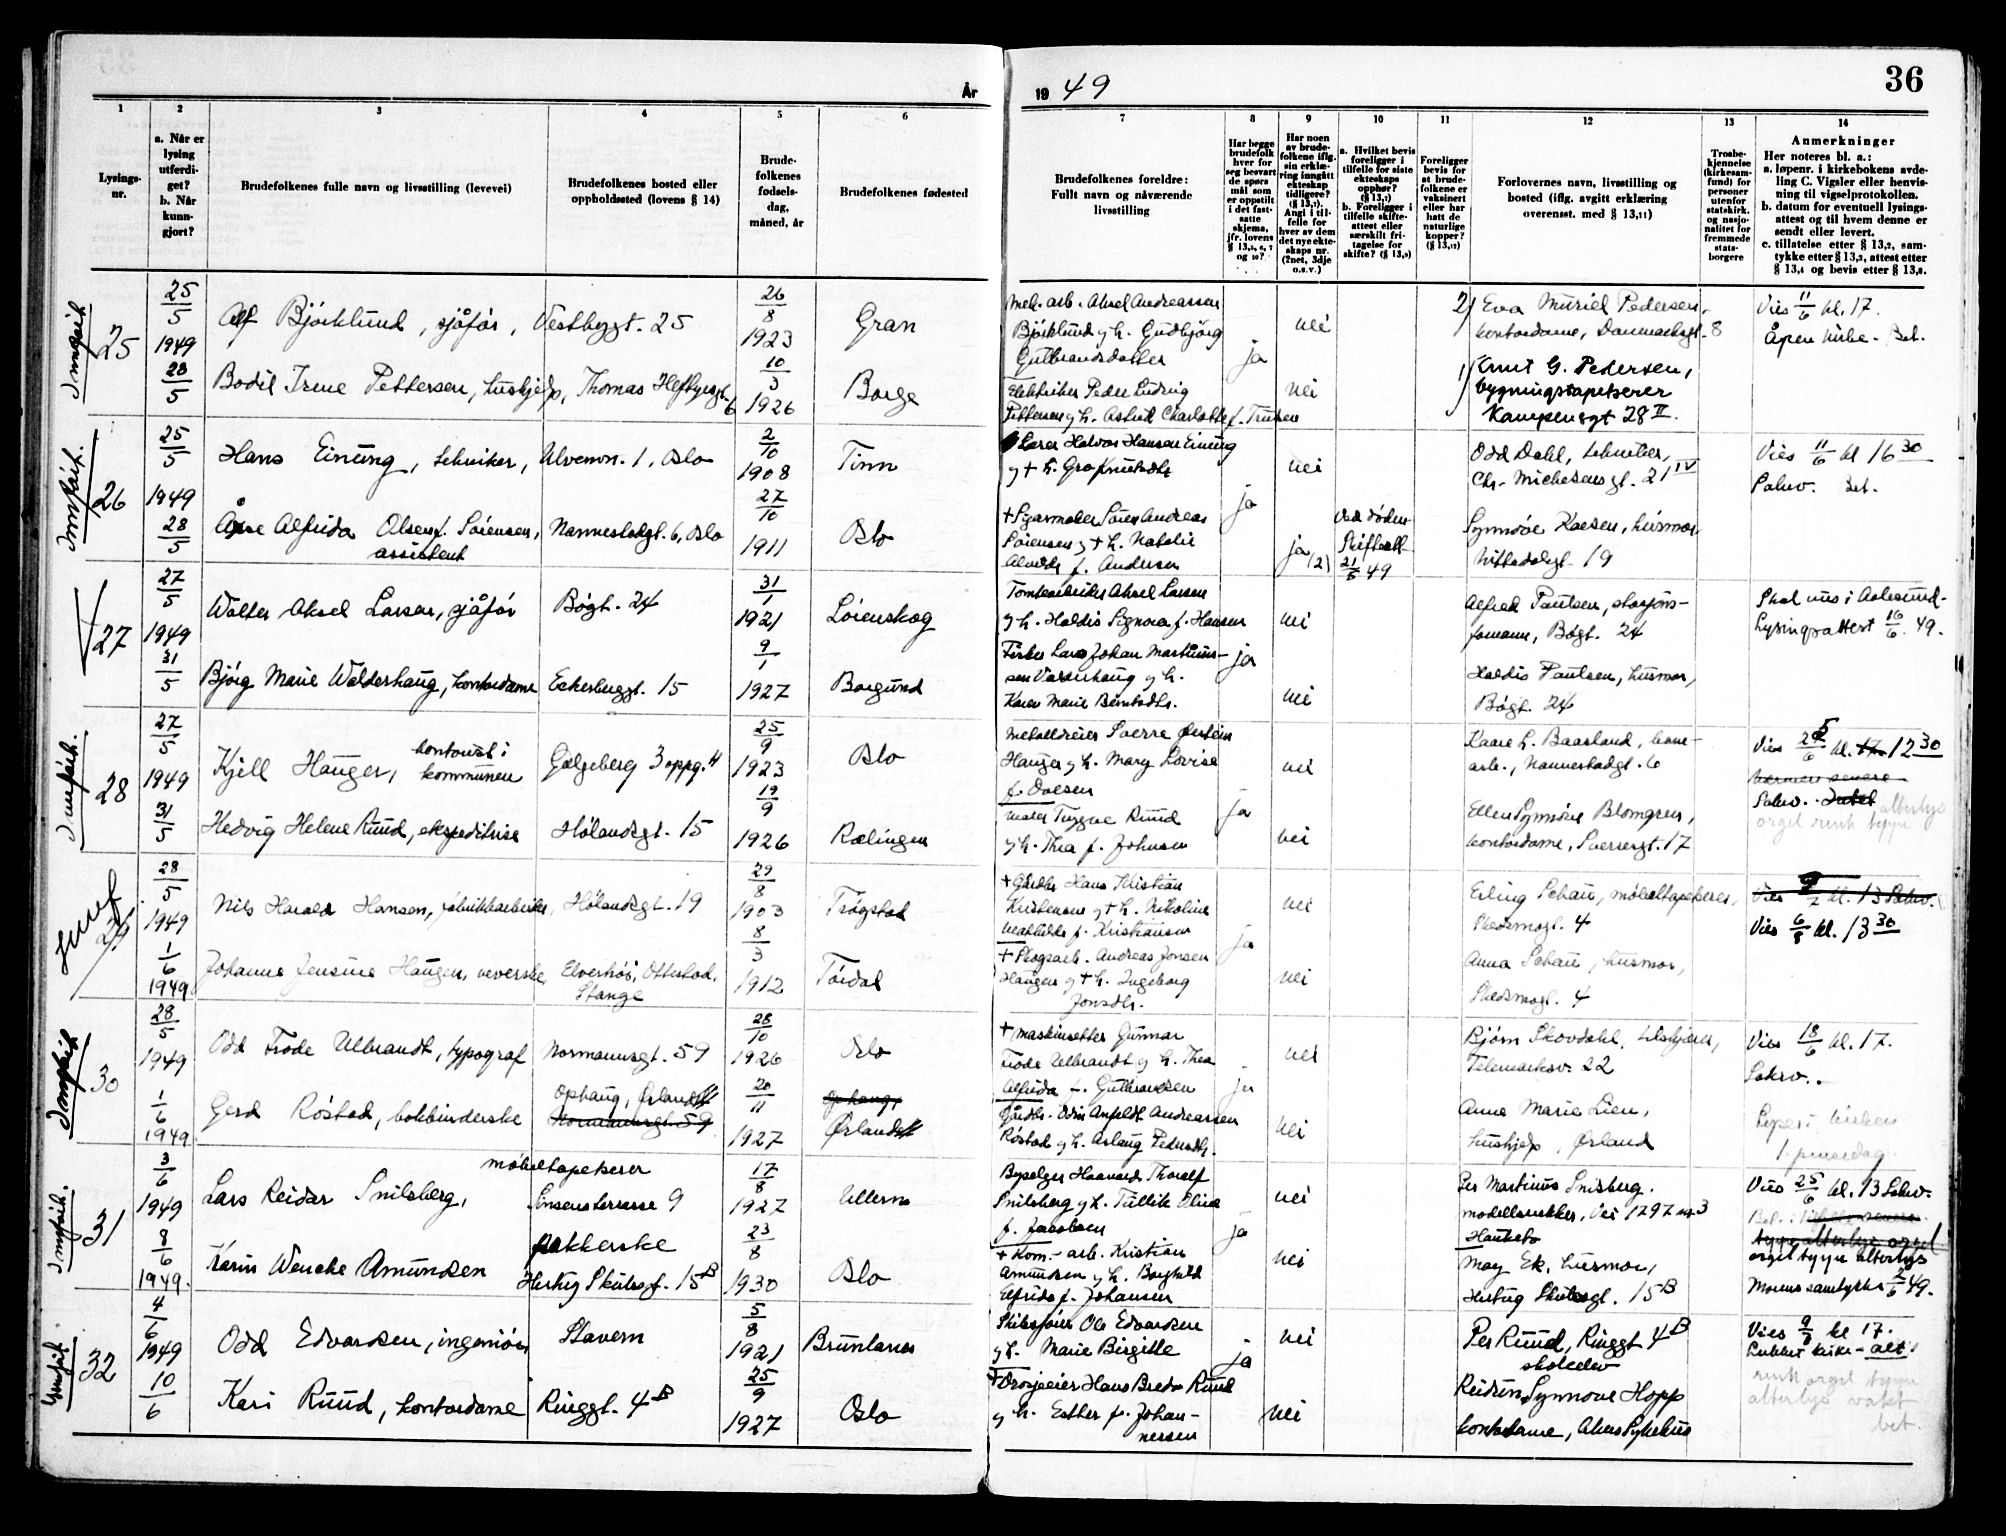 År 1949
36
1 2 3 4 5 6 7 8 9 10 11 12 13 14
Lysings-
nr.
a. Når er
lysing
utferdi-
get?
b. Når
kunn-
gjort?
Brudefolkenes fulle navn og livsstilling (levevei)
Brudefolkenes bosted eller
oppholdssted (lovens § 14)
Brude-
folkenes
fødsels-
dag,
måned, år
Brudefolkenes fødested
Brudefolkenes foreldre:
Fullt navn og nåværende
livsstilling
Har begge
brudefolk
hver for
seg besvart
de spørs
mål som
er oppstilt
i det fast-
satte
skjema,
jfr. lovens
Har noen
av brude-
folkene iflg.
sin erklæ-
ring inngått
ekteskap
tidligere?
Angi i til-
felle for
hver av dem
det nye ekte-
skaps nr.
(2net, 3dje
o.s.v.)
a. Hvilket bevis
foreligger i
tilfelle for siste
ekteskaps
opphør?
b. Foreligger i
tilfelle skifte-
attest eller
særskilt fri-
tagelse for
skifte? (§ 13,9)
Foreligger
bevis for
at brude-
folkene er
vaksinert
eller har
hatt de
naturlige
kopper?
Forlovernes navn, livsstilling og
bosted (iflg. avgitt erklæring
overensst. med § 13,11)
Trosbe-
kjennelse
(kirkesam-
fund) for
personer
utenfor
statskirk.
og nasjo-
nalitet for
fremmede
stats-
borgere
Anmerkninger
Her noteres bl. a.:
a. løpenr. i kirkebokens avde-
ling C. Vigsler eller henvis-
ning til vigselprotokollen.
b. datum for eventuell lysings-
attest og til hvem denne er
sendt eller levert.
c. tillatelse etter § 13,2, sam-
tykke etter § 13,3, attest etter
§ 13,4 og bevis etter § 13,8.
25
25/5 1949
28/5
Alf Bjørklund, sjåfør, Vestbygt. 25
26/8 1923
Gran
Mek. arb. Aksel Andreassen
Bjørklund og h. Gudbjørg
Gulbrandsdatter
ja
nei
2) Eva Muriel Pedersen,
kontordame, Danmarksgt. 8
Vies 11/6 kl. 17.
Åpen kirke. Bet.
Bodil Irene Pettersen, hushjelp, Thomas Heftyesgt. 6
10/3 1926
Borge
Elektriker Peder Ludvig
Pettersen og h. Astrid Charlotte f.
nei
1) Knut G. Pedersen,
bygningstapetserer
Kampensgt 28 II.
26
25/5 1949
28/5
Hans Einung, tekniker, Ulvenvn. 1, Oslo
2/10 1908
Tinn
Lærer Halvor Hansen Einung
og + h. Gro Knutsdtr
ja
nei
Odd Dahl, tekniker,
Chr. Michelsens gt. 21 IV
Vies 11/6 kl 16 30
Sakrv. Bet.
Åse Alfrida Olsen f. Sørensen, Nannestadgt. 6, Oslo
assistent
27/10 1911
Oslo
+ Sigarmaker Søren Andreas
Sørensen og + h. Natalie
f. Andersen
ja (2)
Ved døden
Skifteatt
21/5 49
Synnøve Karsen, husmor,
Nittedalgt. 19
27
27/5 1949
31/5
Walter Aksel Larsen, sjåfør Bøgt. 24
31/1 1921
Lørenskog
Tomtearbeider Aksel Larsen
og h. Haldis Signora f. Hansen
ja
nei
Alfred Paulsen, stasjons-
formann, Bøgt. 24
Skal vies i Aalesund.
Lysingsattest 16/6. 49.
Bjørg Marie Walderhaug, kontordame Eckersbergt. 15
9/1 1927
Borgund
Fisker Lars Johan Martinus-
sen Valderhaug og h.
Karen Marie Berntsdtr.
nei
Haldis Paulsen, husmor,
Bøgt. 24
28
27/5 1949
31/5
Kjell Hauger, kontorist i
kommunen
Galgeberg 3 oppg. 4
25/9 1923
Oslo
Metalldreier Sverre Øistein
Hauger og h. Mary Lovise
f. Olsen
ja
nei
Kaare L. Baarland,
arb., Nannestadgt. 6
Vies 25/6 kl. 17. 12 30
Sakrv.
Hedvig Helene Ruud, ekspeditrise Hølandsgt. 15
19/9 1926
Rælingen
Maler Trygve Ruud
og h. Thea f. Johnsen
nei
Ellen Synnøve Blomgren,
kontordame, Sverresgt. 17
29
28/5 1949
1/6 1949
Nils Harald Hansen, fabrikkarbeider, Hølandsgt. 19
29/8 1903
Trøgstad
+ Gårdbr. Hans Kristian
Kristensen og + h. Nikoline
Mathilde f. Kristiansen
ja
nei
Erling Schau, møbeltapetserer,
Skedsmogt. 4
Vies 9/7 kl. 13 Sakrv.
Vies 6/8 kl. 13 30
Johanne Jensine Haugen, veverske, Elverhøi, Ottestad,
Stange
8/3 1912
Tørdal
+ Skogsarb. Andreas Jonsen
Haugen og + h. Ingeborg
Jonsdtr.
nei
Anna Schau, husmor,
Skedsmogt. 4
30
28/5 1949
1/6 1949
Odd Frode Ulbrandt, typograf Normannsgt. 59
28/10 1926
Oslo
+ Maskinsetter Gunnar
Frode Ulbrandt og h. Thea
Alfrida f. Gulbrandsen
ja
nei
Bjørn Skovdahl,
Telemarksv. 22
Vies 18/6 kl. 17.
Sakrv.
Gerd Røstad, bokbinderske Ophaug, Ørland
Normannsgt. 59
20/11 1927
Ophaug,
Ørland
Gårdbr. Odin Anfeldt Andreassen
Røstad og h. Aslaug Pedersdtr.
nei
Anne Marie Lien,
hushjelp, Ørland
31
3/6 1949
8/6 1949.
Lars Reidar Snilsberg, møbeltapetserer
Sinsenterrasse 9
17/8 1927
Ullern
Bypelger Haavard Thoralf
Snilsberg og h. Tullik Oline
f. Jacobsen
ja
nei
Per Martinus Snilsberg.
modellsnekker, Vei 1797 nr. 3
Hauketo
Vies 25/6 kl. 13 Sakrv.
orgel bygge alterlys
Morens samtykke 2/6 49.
Karin Wenche Amundsen pakkerske
Hertug Skulesgt. 15 B
23/8 1930
Oslo
+ Kom.- arb. Kristian
Amundsen og h. Borghild
Elfrida f. Johansen
nei
May Ek, husmor,
Hertug Skulesgt. 15 B
32
4/6 1949
10/6
Odd Edvardsen, ingeniør Stavern
5/8 1921
Brunlanes
Skibsfører Ole Edvardsen
og h. Marie Birgitte
ja
nei
Per Ruud, Ringgt 4 B
skoleelev
Vies 9/7 kl 17.
Lukket kirke - alt
Kari Ruud, kontordame Ringgt. 4 B
25/9 1927
Oslo
+ Drosjeeier Hans Bredo Ruud
og h. Esther f. Johan-
nessen
nei
Reidun Synnøve Hopp
kontordame, Akers Sykehus